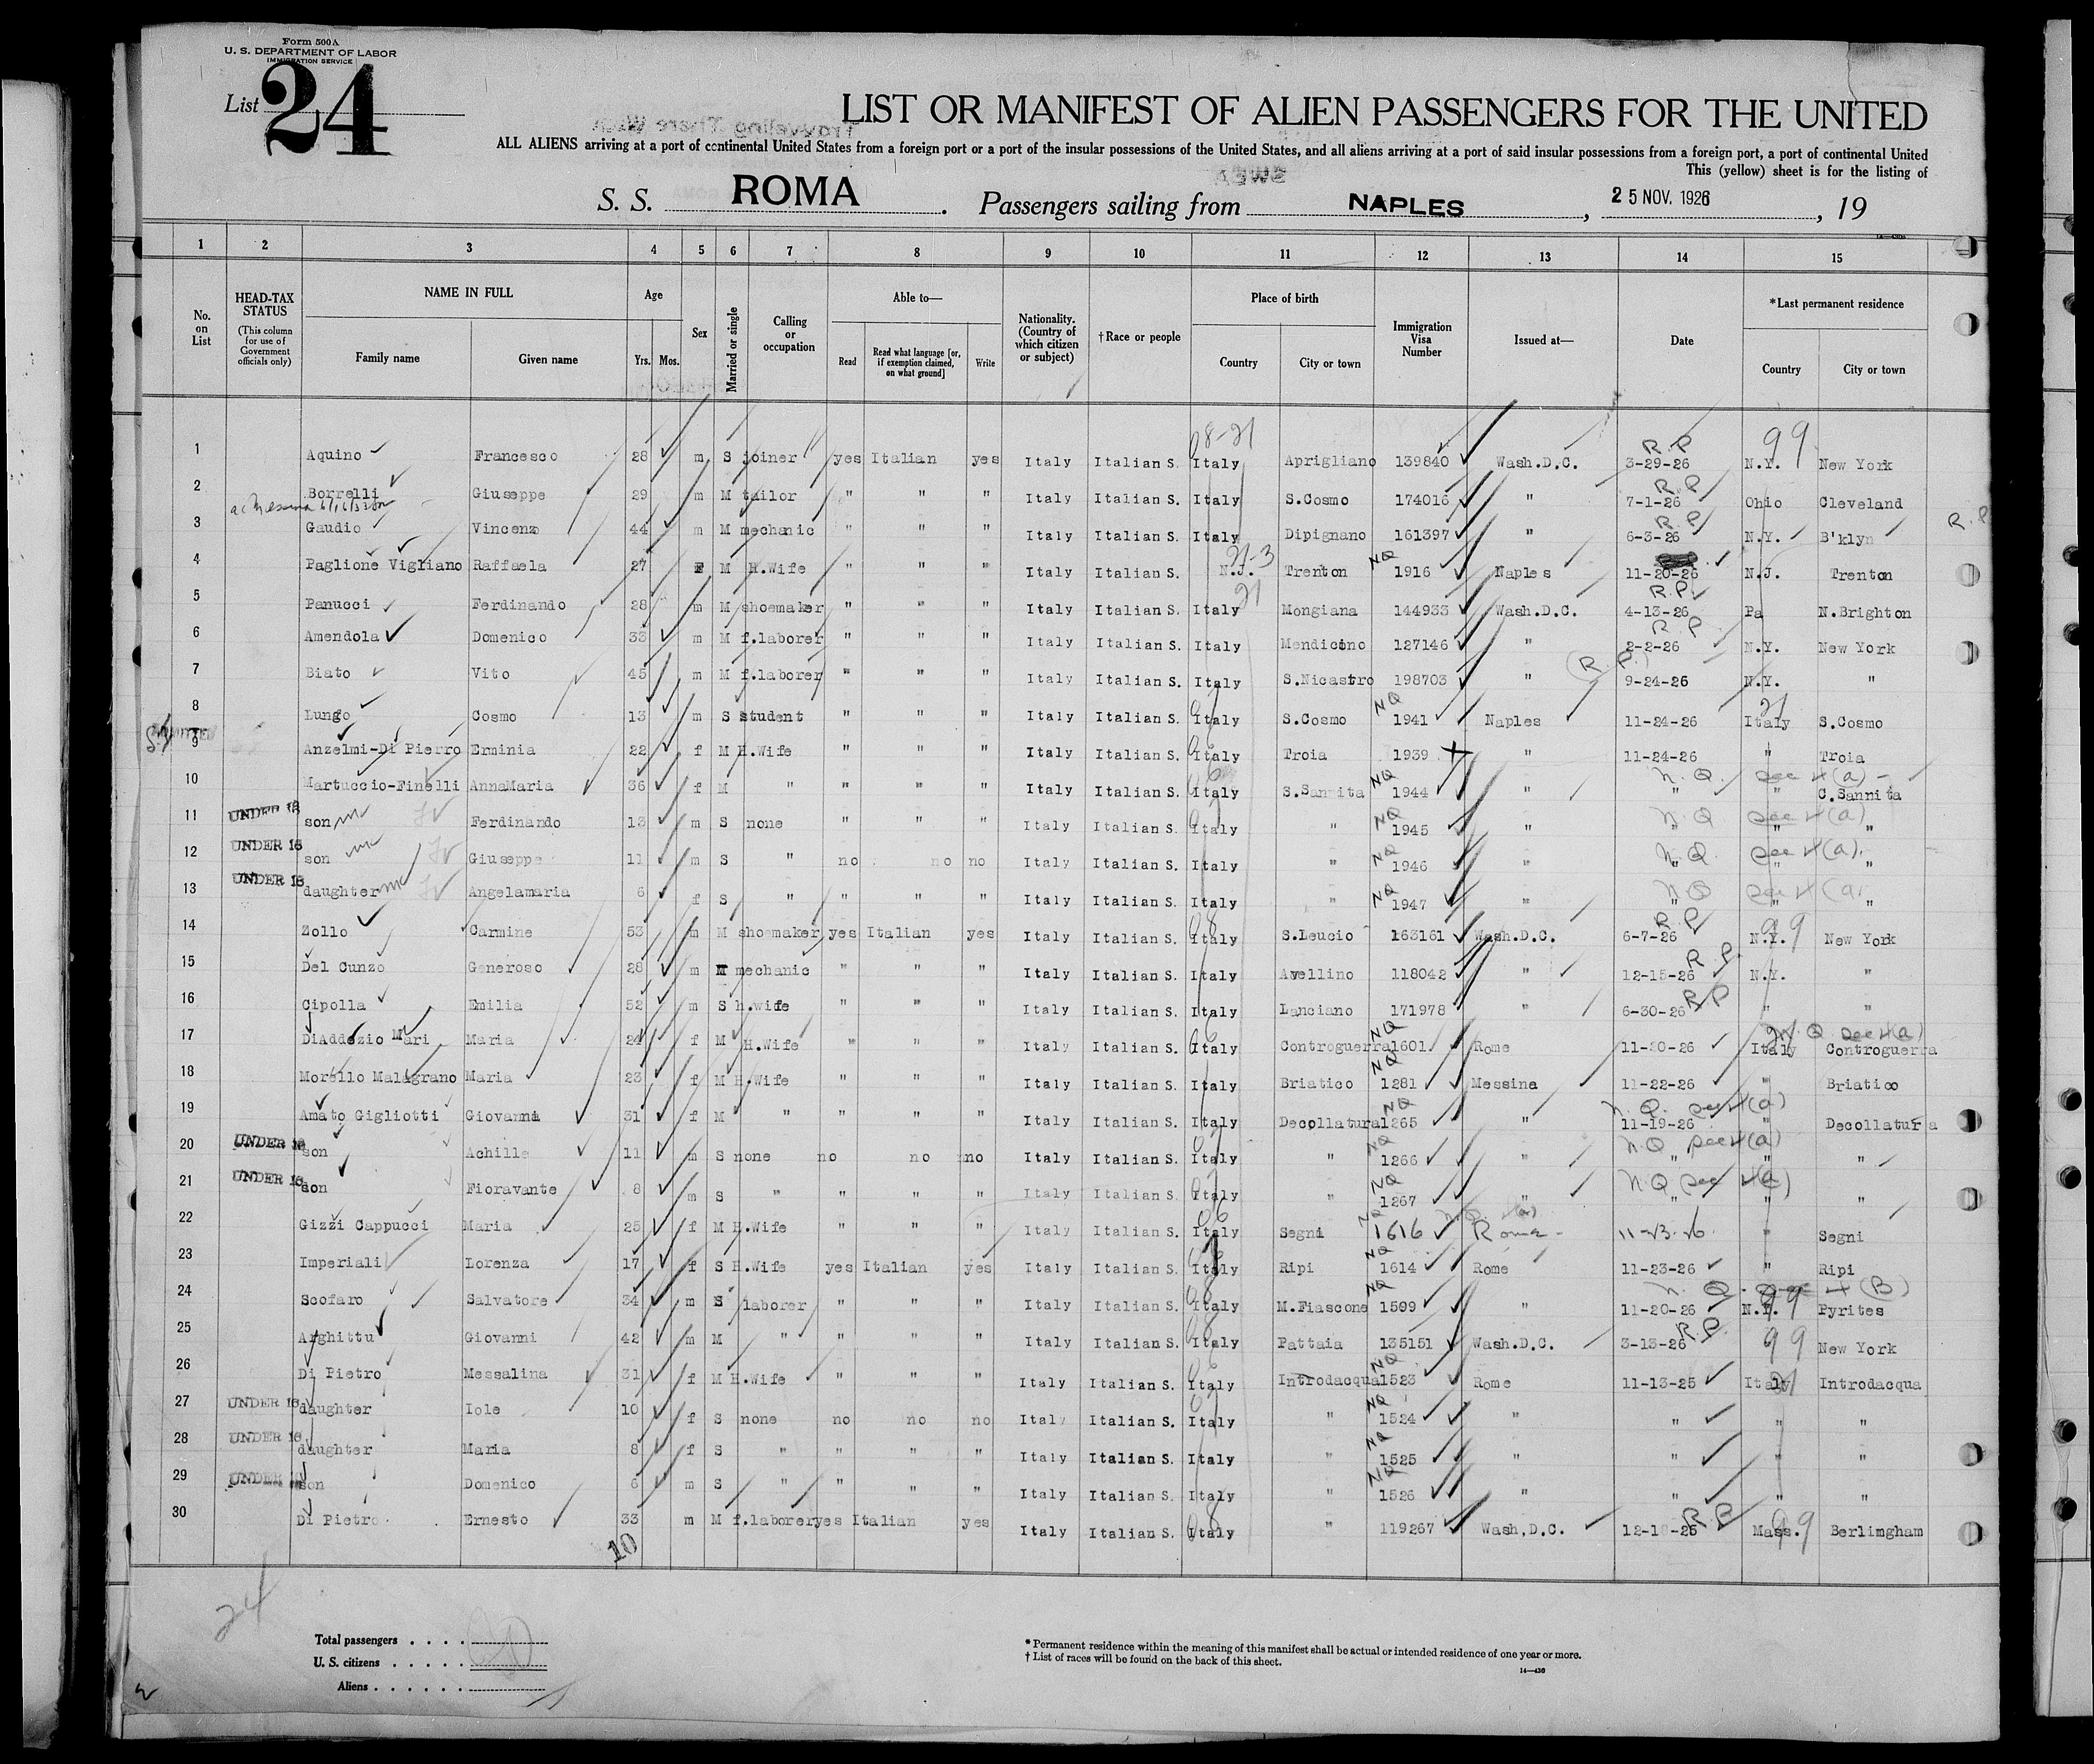 Form 500A
U. S. DEPARTMENT OF LABOR
IMMIGRATION SERVICE
List 24
LIST OR MANIFEST OF ALIEN PASSENGERS FOR THE UNITED
ALL ALIENS arriving at a port of continental United States from a foreign port or a port of the insular possessions of the United States, and all aliens arriving at a port of said insular possessions from a foreign port, a port of continental United
This (yellow) sheet is for the listing of
S. S. ROMA. Passengers sailing from NAPLES, 25 NOV. 1926, 19
1 2 3 4 5 6 7 8 9 10 11 12 13 14 15
No. on List HEAD-TAX STATUS (This column for use of Government officials only) NAME IN FULL Family name Given name Age Yrs. Mos. Sex Married or single Calling or occupation Able to— Read Read what language [or, if exemption claimed, on what ground] Write Nationality. (Country of which citizen or subject) †Race or people Place of birth Country City or town Immigration Visa Number Issued at— Date *Last permanent residence Country City or town
1 Aquino Francesco 28 m S joiner yes Italian yes Italy Italian S. Italy Aprigliano 139840 Wash.D.C. R.P 3-29-26 N.Y. 99 New York
2 Borrelli Giuseppe 29 m M tailor " " " Italy Italian S. Italy S.Cosmo 174016 " R.P 7-1-26 Ohio Cleveland
3 Gaudio Vincenzo 44 m M mechanic " " " Italy Italian S. Italy Dipignano 161397 " R.P 6-3-26 N.Y. B'klyn R.P
4 Paglione Vigliano Raffaela 27 F M H.Wife " " " Italy Italian S. N.J. Trenton NQ 1916 Naples 11-20-26 N.J. Trenton
5 Panucci Ferdinando 28 m M shoemaker " " " Italy Italian S. Italy Mongiana 144933 Wash.D.C. R.P. 4-13-26 Pa N.Brighton
6 Amendola Domenico 33 m M f.laborer " " " Italy Italian S. Italy Mendicino 127146 " R.P. 2-2-26 N.Y. New York
7 Biato Vito 45 m M f.laborer " " " Italy Italian S. Italy S.Nicastro 198703 " (R.P.) 9-24-26 N.Y. "
8 Lungo Cosmo 13 m S student " " " Italy Italian S. Italy S.Cosmo NQ 1941 Naples 11-24-26 Italy S.Cosmo
9 Anzelmi-Di Pierro Erminia 22 f M H.Wife " " " Italy Italian S. Italy Troia 1939 " 11-24-26 " Troia
10 Martuccio-Finelli AnnaMaria 36 f M " " " " Italy Italian S. Italy S.Sannita NQ 1944 " N.Q. see 4(a) " " C.Sannita
11 UNDER 16 son Ferdinando 13 m S none " " " Italy Italian S. Italy " NQ 1945 " N.Q see 4(a) " "
12 UNDER 16 son Giuseppe 11 m S " no no no Italy Italian S. Italy " NQ 1946 " N.Q. see 4(a). " " "
13 UNDER 16 daughter Angelamaria 6 f S " " " " Italy Italian S. Italy " NQ 1947 " N.Q see 4(a) " " "
14 Zollo Carmine 53 m M shoemaker yes Italian yes Italy Italian S. Italy S.Leucio 163161 Wash.D.C. R.P 6-7-26 N.Y. 99 New York
15 Del Cunzo Generoso 28 m M mechanic " " " Italy Italian S. Italy Avellino 118042 " R.P 12-15-26 N.Y. "
16 Cipolla Emilia 52 m S h.wife " " " Italy Italian S. Italy Lanciano 171978 " 6-30-26 R.P " "
17 DiAddezio Mari Maria 24 f M H.Wife " " " Italy Italian S. Italy Controguerra NQ 1601 Rome 11-20-26 N.Q see 4(a) Italy Controguerra
18 Morello Malagrano Maria 23 f M H.Wife " " " Italy Italian S. Italy Briatico NQ 1281 Messina 11-22-26 " Briatico
19 Amato Gigliotti Giovanna 31 f M " " " " Italy Italian S. Italy Decollatura NQ 1265 " N.Q. see 4(a) 11-19-26 " Decollatura
20 UNDER 16 son Achille 11 m S none no no no Italy Italian S. Italy " NQ 1266 " N.Q see 4(a) " " "
21 UNDER 16 son Fioravante 8 m S " " " " Italy Italian S. Italy " NQ 1267 " N.Q see 4(a) " " "
22 Gizzi Cappucci Maria 25 f M H.Wife " " " Italy Italian S. Italy Segni NQ 1616 Roma 11-23-26 " Segni
23 Imperiali Lorenza 17 f S H.Wife yes Italian yes Italy Italian S. Italy Ripi NQ 1614 Rome 11-23-26 " Ripi
24 Scofaro Salvatore 34 m S laborer " " " Italy Italian S. Italy M.Fiascone NQ 1599 " N.Q. see 4(B) 11-20-26 N.Y. 99 Pyrites
25 Arghittu Giovanni 42 m M " " " " Italy Italian S. Italy Pattaia 135151 Wash.D.C. 3-13-26 R.P. 99 New York
26 Di Pietro Messalina 31 f M H.Wife " " " Italy Italian S. Italy Introdacqua NQ 1523 Rome 11-13-25 Italy Introdacqua
27 UNDER 16 daughter Iole 10 f S none no no no Italy Italian S. Italy " NQ 1524 " " " "
28 UNDER 16 daughter Maria 8 f S " " " " Italy Italian S. Italy " NQ 1525 " " " "
29 UNDER 16 son Domenico 6 m S " " " " Italy Italian S. Italy " NQ 1526 " " " "
30 Di Pietro Ernesto 33 m M f.laborer yes Italian yes Italy Italian S. Italy " 119267 Wash,D.C. 12-18-25 R.P Mass. 99 Berlimgham
10
24
Total passengers . . . .
U. S. citizens . . . . .
Aliens . . . . . .
* Permanent residence within the meaning of this manifest shall be actual or intended residence of one year or more.
† List of races will be found on the back of this sheet.
14—430